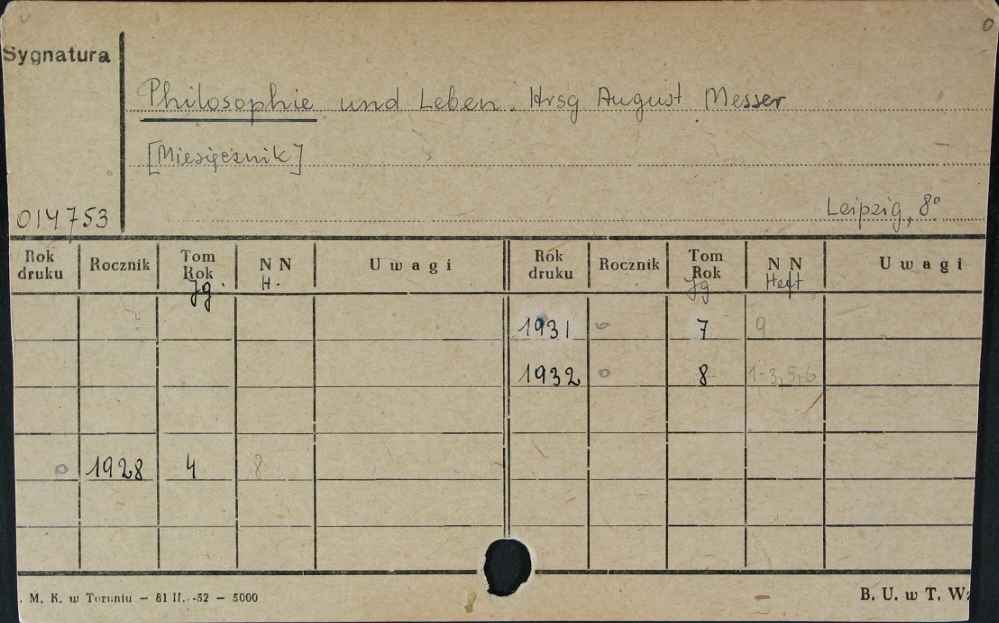 Sygnatura
Philosophie und Leben. Hrsg August Messer
[Miesięcznik]
014753
Leipzig, 8°
Rok druku Rocznik Tom Rok Jg. N N H. Uwagi Rok druku Rocznik Tom Rok Jg N N Heft Uwagi
1931 o 7 9
1932 o 8 1-3, 5,6
o 1928 4 8
. M. K. w Toruniu — 81 II. -52 — 5000
B. U. w T. W